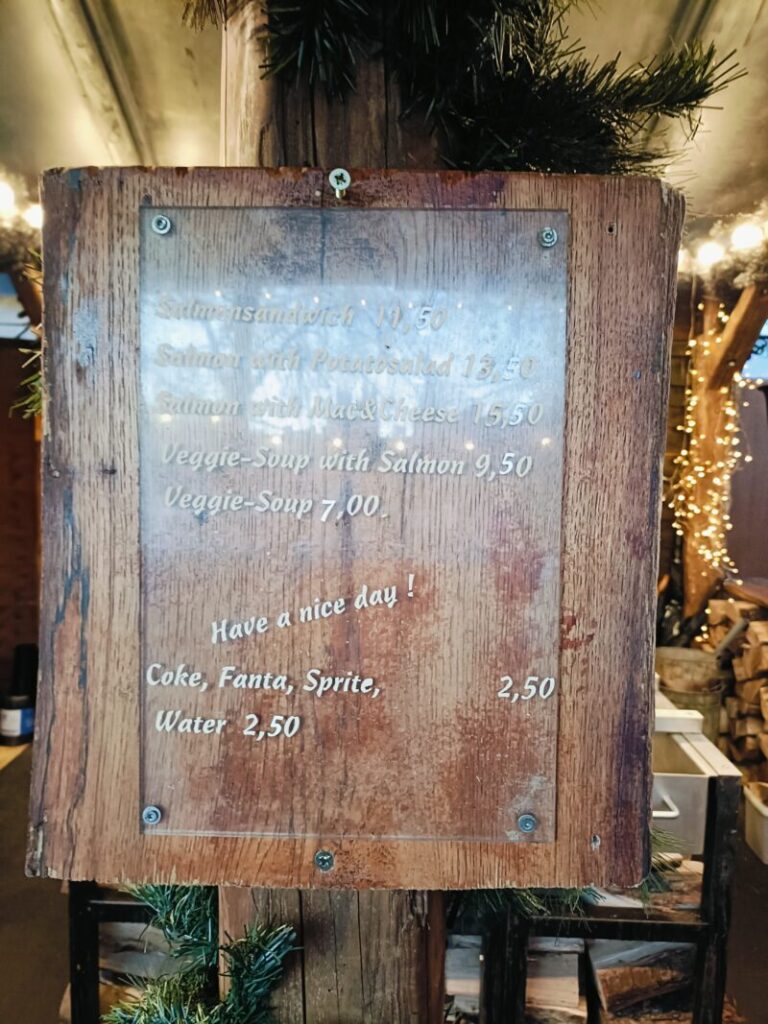 Salmonsandwich 11,50
Salmon with Potatosalad 13,50
Salmon with Mac&Cheese 15,50
Veggie-Soup with Salmon 9,50
Veggie-Soup 7,00.
Have a nice day !
Coke, Fanta, Sprite, 2,50
Water 2,50